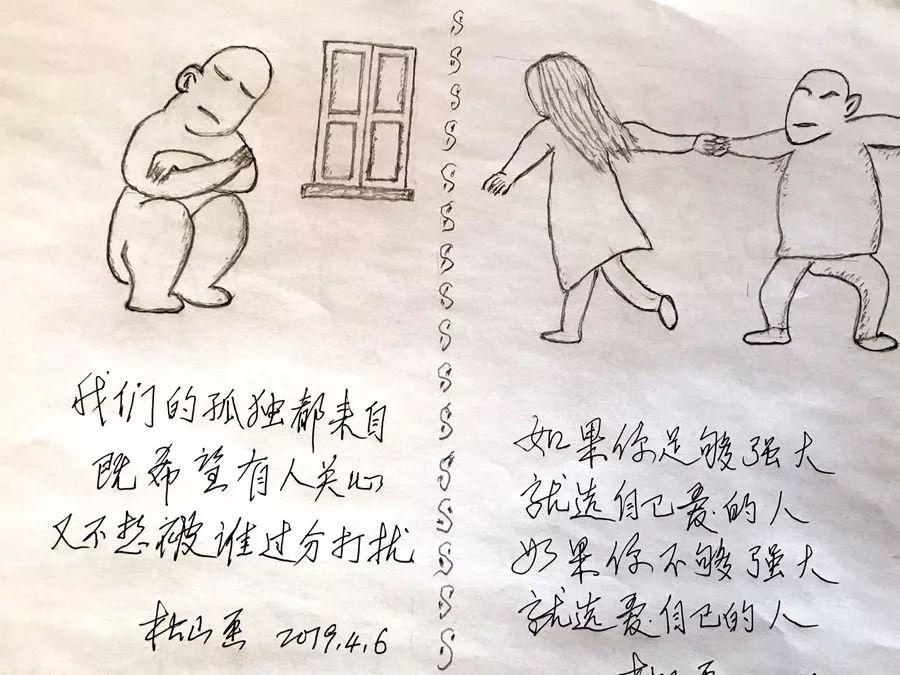 我们的孤独都来自
既希望有人关心
又不想被谁过分打扰
松山画 2019.4.6
如果你足够强大
就选自己爱的人
如果你不够强大
就选爱自己的人